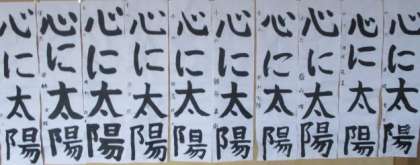 心に太陽
心に太陽
心に太陽
心に太陽
心に太陽
心に太陽
心に太陽
心に太陽
心に太陽
心に太陽